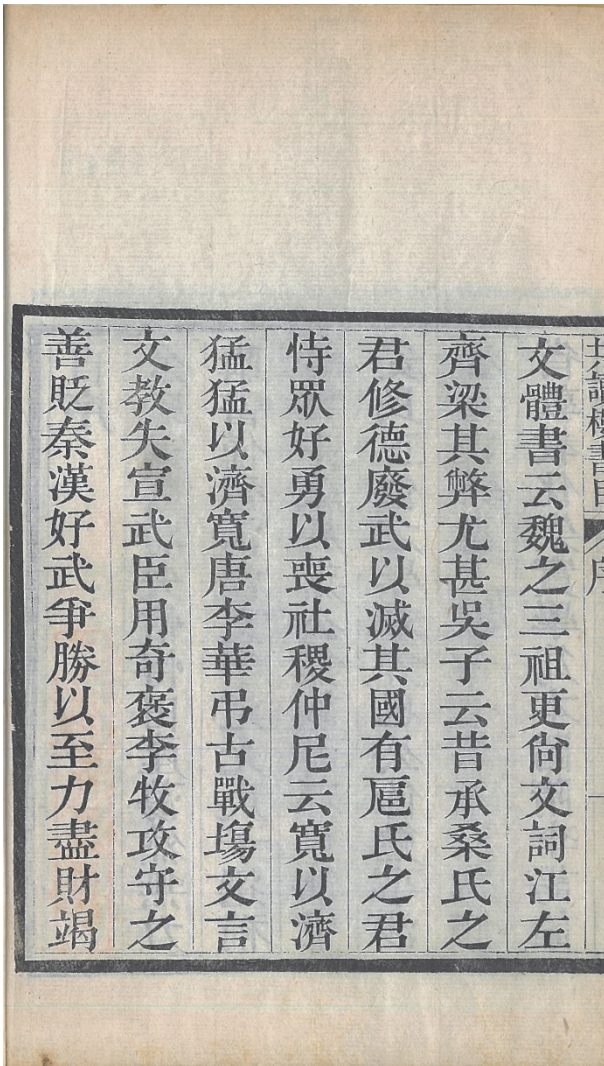 共讀樓書目 序
文體書云魏之三祖更尙文詞江左
齊梁其弊尤甚吳子云昔承桑氏之
君修德廢武以滅其國有扈氏之君
恃眾好勇以喪社稷仲尼云寬以濟
猛猛以濟寬唐李華弔古戰塲文言
文教失宣武臣用奇褒李牧攻守之
善貶秦漢好武爭勝以至力盡財竭